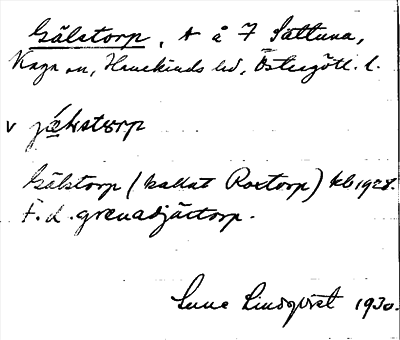 Gälstorp, t å 7 Sättuna,
Kaga sn, Hanekinds hd, Östergötl. l.
v jǽlstorp
Gälstorp (kallat Rostorp) kb 1928.
F.d. grenadjärtorp.
Sune Lindqvist 1930.